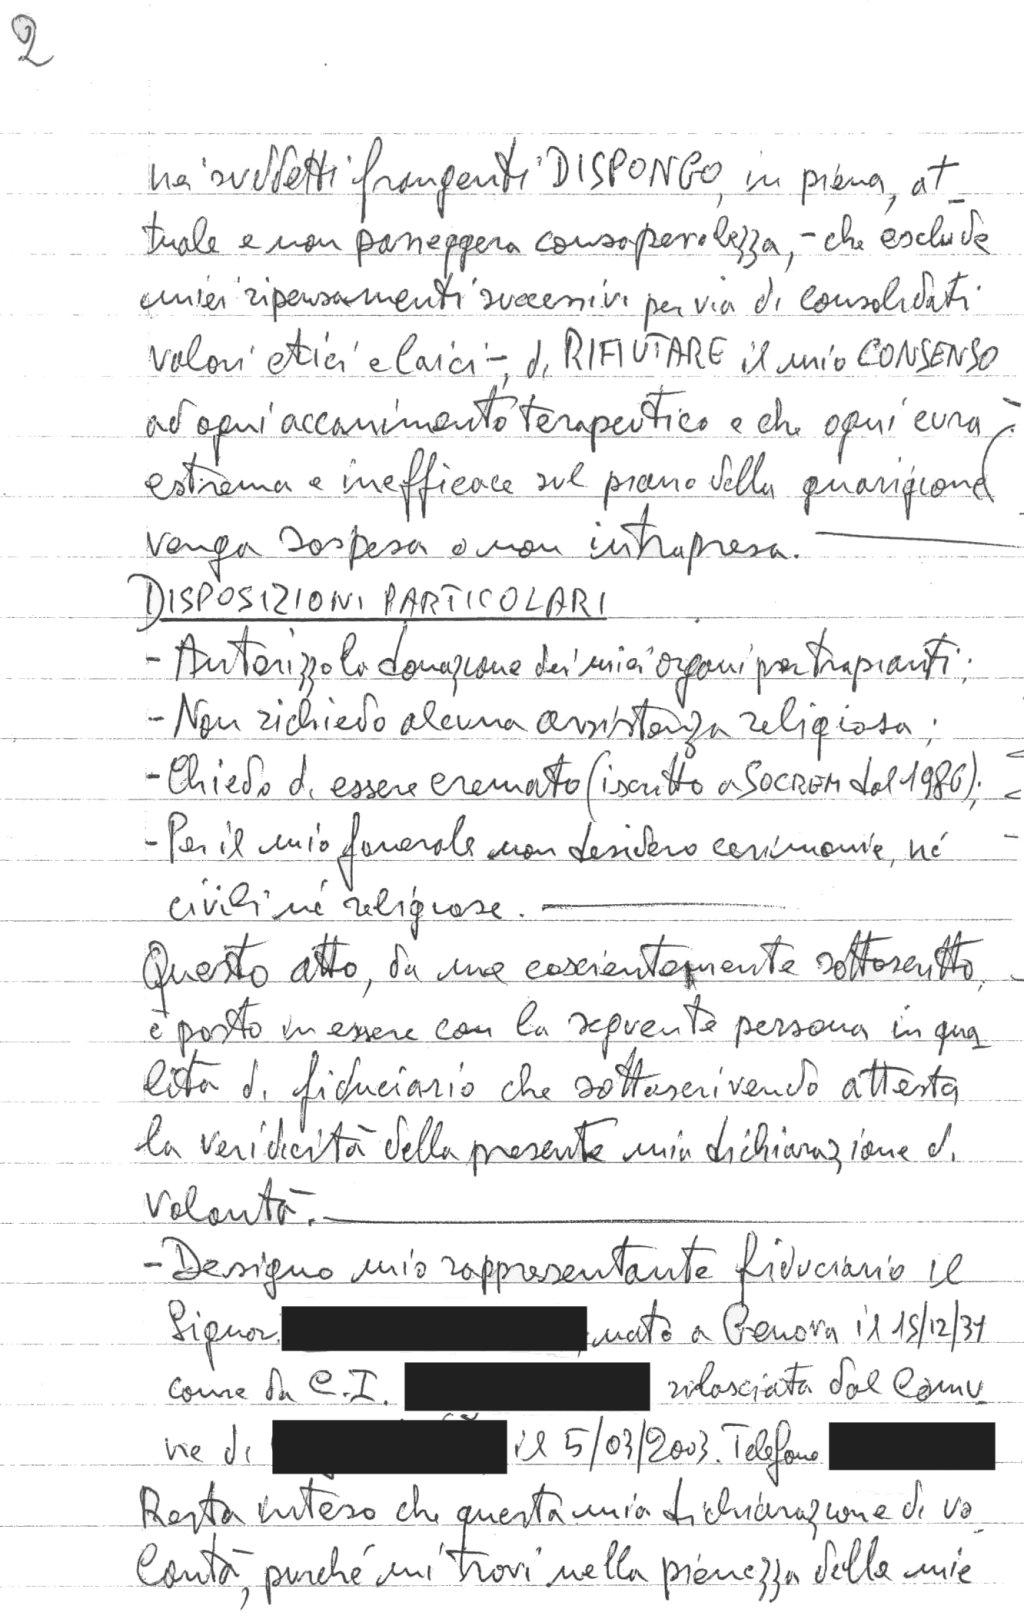 2
nei suddetti frangenti DISPONGO, in piena, at-
tuale e non passeggera consapevolezza, - che esclude
miei ripensamenti successivi per via di consolidati
valori etici e laici -, di RIFIUTARE il mio CONSENSO
ad ogni accanimento terapeutico e che ogni cura
estrema e inefficace sul piano della guarigione
venga sospesa o non intrapresa.
DISPOSIZIONI PARTICOLARI
- Autorizzo la donazione dei miei organi per trapianti;
- Non richiedo alcuna assistenza religiosa;
- Chiedo di essere cremato (iscritto a SOCREM dal 1986);
- Per il mio funerale non desidero cerimonie, né
civili né religiose.
Questo atto, da me coscientemente sottoscritto,
è posto in essere con la seguente persona in qua-
lità di fiduciario che sottoscrivendo attesta
la veridicità della presente mia dichiarazione di
volontà.
- Designo mio rappresentante fiduciario il
Signor, nato a Genova il 15/12/31
come da C.I. rilasciata dal Comu-
ne di il 5/03/2003. Telefono
Resta inteso che questa mia dichiarazione di vo-
lontà, purché mi trovi nella pienezza delle mie